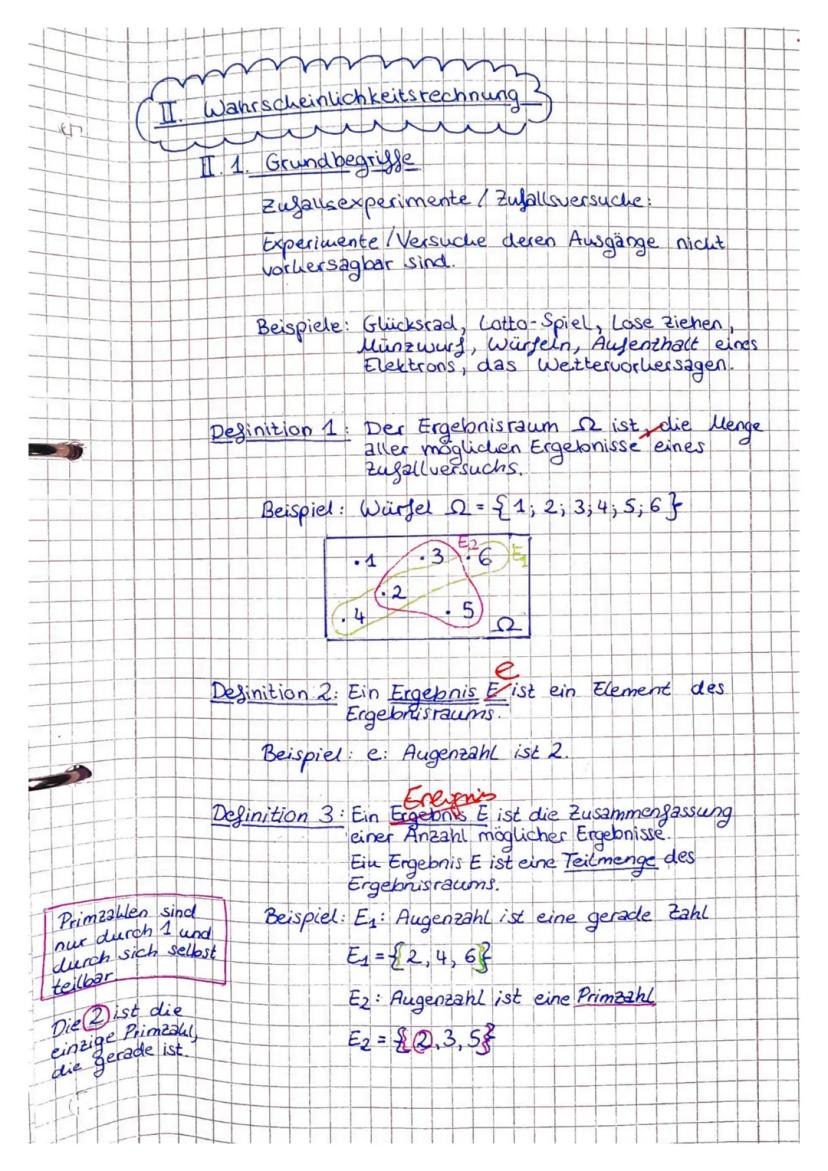 II. Wahrscheinlichkeitsrechnung
II.1. Grundbegriffe
Zufallsexperimente / Zufallsversuche:
Experimente / Versuche deren Ausgänge nicht
vorhersagbar sind.
Beispiele: Glücksrad, Lotto-Spiel, Lose ziehen,
Münzwurf, Würfeln, Aufenthalt eines
Elektrons, das Wettervorhersagen.
Definition 1: Der Ergebnisraum Ω ist die Menge
aller möglichen Ergebnisse eines
Zufallversuchs.
Beispiel: Würfel Ω = {1; 2; 3; 4; 5; 6}
E2
.1 .3 .6 E1
.2
.4 .5 Ω
e
Definition 2: Ein Ergebnis E ist ein Element des
Ergebnisraums.
Beispiel: e: Augenzahl ist 2.
Ereignis
Definition 3: Ein Ergebnis E ist die Zusammenfassung
einer Anzahl möglicher Ergebnisse.
Ein Ergebnis E ist eine Teilmenge des
Ergebnisraums.
Beispiel: E1: Augenzahl ist eine gerade Zahl
E1 = {2, 4, 6}
E2: Augenzahl ist eine Primzahl
E2 = {2, 3, 5}
Primzahlen sind
nur durch 1 und
durch sich selbst
teilbar.
Die 2 ist die
einzige Primzahl,
die gerade ist.